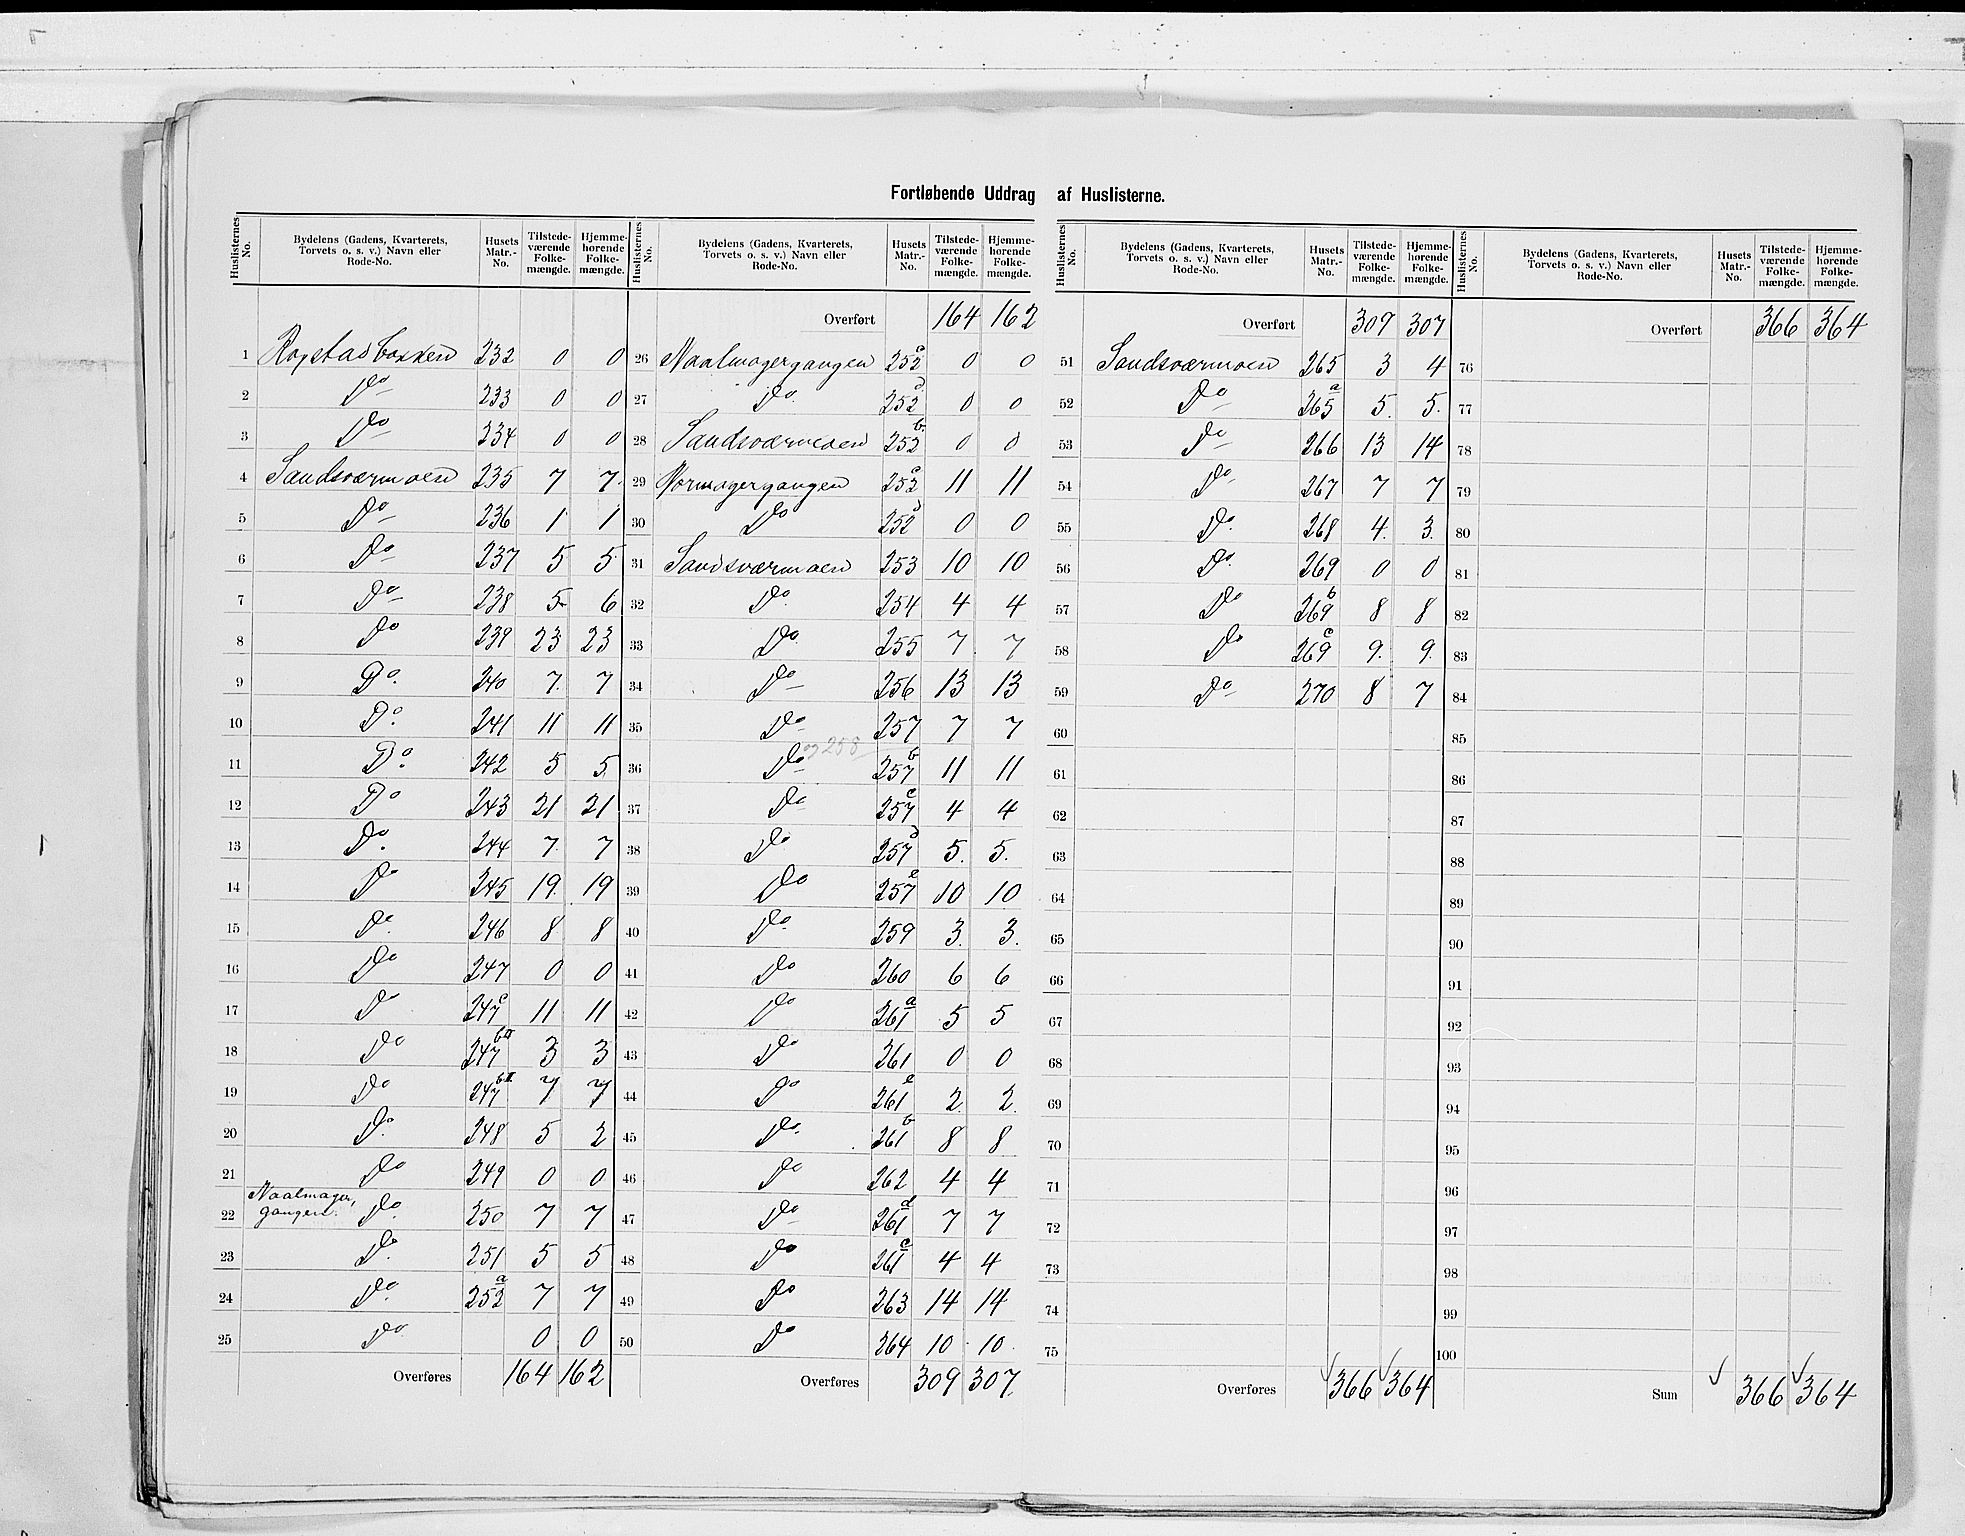 Fortløbende Uddrag af Huslisterne.
Huslisternes No. | Bydelens (Gadens, Kvarterets, Torvets o. s. v.) Navn eller Rode-No. | Husets Matr.-No. | Tilstede-værende Folke-mængde. | Hjemme-hørende Folke-mængde.
1 Rogstadbakken 232 0 0
2 Do 233 0 0
3 Do 234 0 0
4 Sandsværmoen 235 7 7
5 Do 236 1 1
6 Do 237 5 5
7 Do 238 5 6
8 Do 239 23 23
9 Do. 240 7 7
10 Do. 241 11 11
11 Do. 242 5 5
12 Do 243 21 21
13 Do. 244 7 7
14 Do 245 19 19
15 Do. 246 8 8
16 Do 247 0 0
17 Do 247c 11 11
18 Do 247b 3 3
19 Do 247bI 7 7
20 Do. 248 5 2
21 Do 249 0 0
22 Naalmager, gangen. Do. 250 7 7
23 Do. 251 5 5
24 Do. 252a 7 7
25 Do 0 0
Overføres 164 162
Huslisternes No. | Bydelens (Gadens, Kvarterets, Torvets o. s. v.) Navn eller Rode-No. | Husets Matr.-No. | Tilstede-værende Folke-mængde. | Hjemme-hørende Folke-mængde.
Overført 164 162
26 Naalmagergangen 252c 0 0
27 Do. 252d 0 0
28 Sandsværmoen 252b 0 0
29 Vormagergangen 252c 11 11
30 Do 252d 0 0
31 Sandsværmoen 253 10 10
32 Do. 254 4 4
33 Do. 255 7 7
34 Do 256 13 13
35 Do 257 7 7
og 258
36 Do 257b 11 11
37 Do 257c 4 4
38 Do 257d 5. 5.
39 Do 257e 10 10
40 Do. 259 3. 3.
41 Do 260 6 6
42 Do 261a 5 5
43 Do 261 0 0
44 Do 261e 2 2
45 Do. 261b 8 8
46 Do 262 4 4
47 Do 261d 7 7
48 Do 261c 4 4
49 Do 263 14 14
50 Do 264 10 10
Overføres 309 307
Huslisternes No. | Bydelens (Gadens, Kvarterets, Torvets o. s. v.) Navn eller Rode-No. | Husets Matr.-No. | Tilstede-værende Folke-mængde. | Hjemme-hørende Folke-mængde.
Overført 309 307
51 Sandsværmoen 265 3 4
52 Do 265a 5. 5.
53 Do 266 13 14
54 Do 267 7 7
55 Do. 268 4. 3.
56 Do. 269 0 0
57 Do 269b 8 8
58 Do 269c 9. 9.
59 Do 270 8 7
60
61
62
63
64
65
66
67
68
69
70
71
72
73
74
75
Overføres 366 364
Huslisternes No. | Bydelens (Gadens, Kvarterets, Torvets o. s. v.) Navn eller Rode-No. | Husets Matr.-No. | Tilstede-værende Folke-mængde. | Hjemme-hørende Folke-mængde.
Overført 366 364
76
77
78
79
80
81
82
83
84
85
86
87
88
89
90
91
92
93
94
95
96
97
98
99
100
Sum 366 364